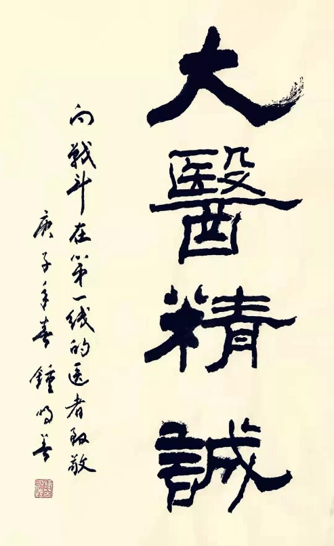 大醫精誠
向戰斗在第一线的医者致敬
庚子年春 鍾明善